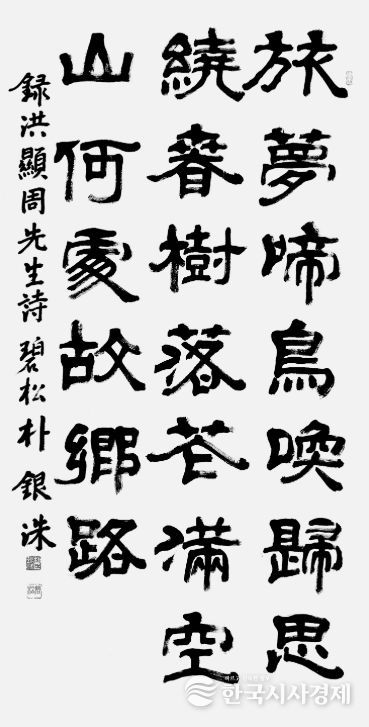 旅夢啼鳥喚歸思
繞春樹落花滿空
山何處故鄕路
録洪顯周先生詩 碧松 朴銀洙
한국시사경제